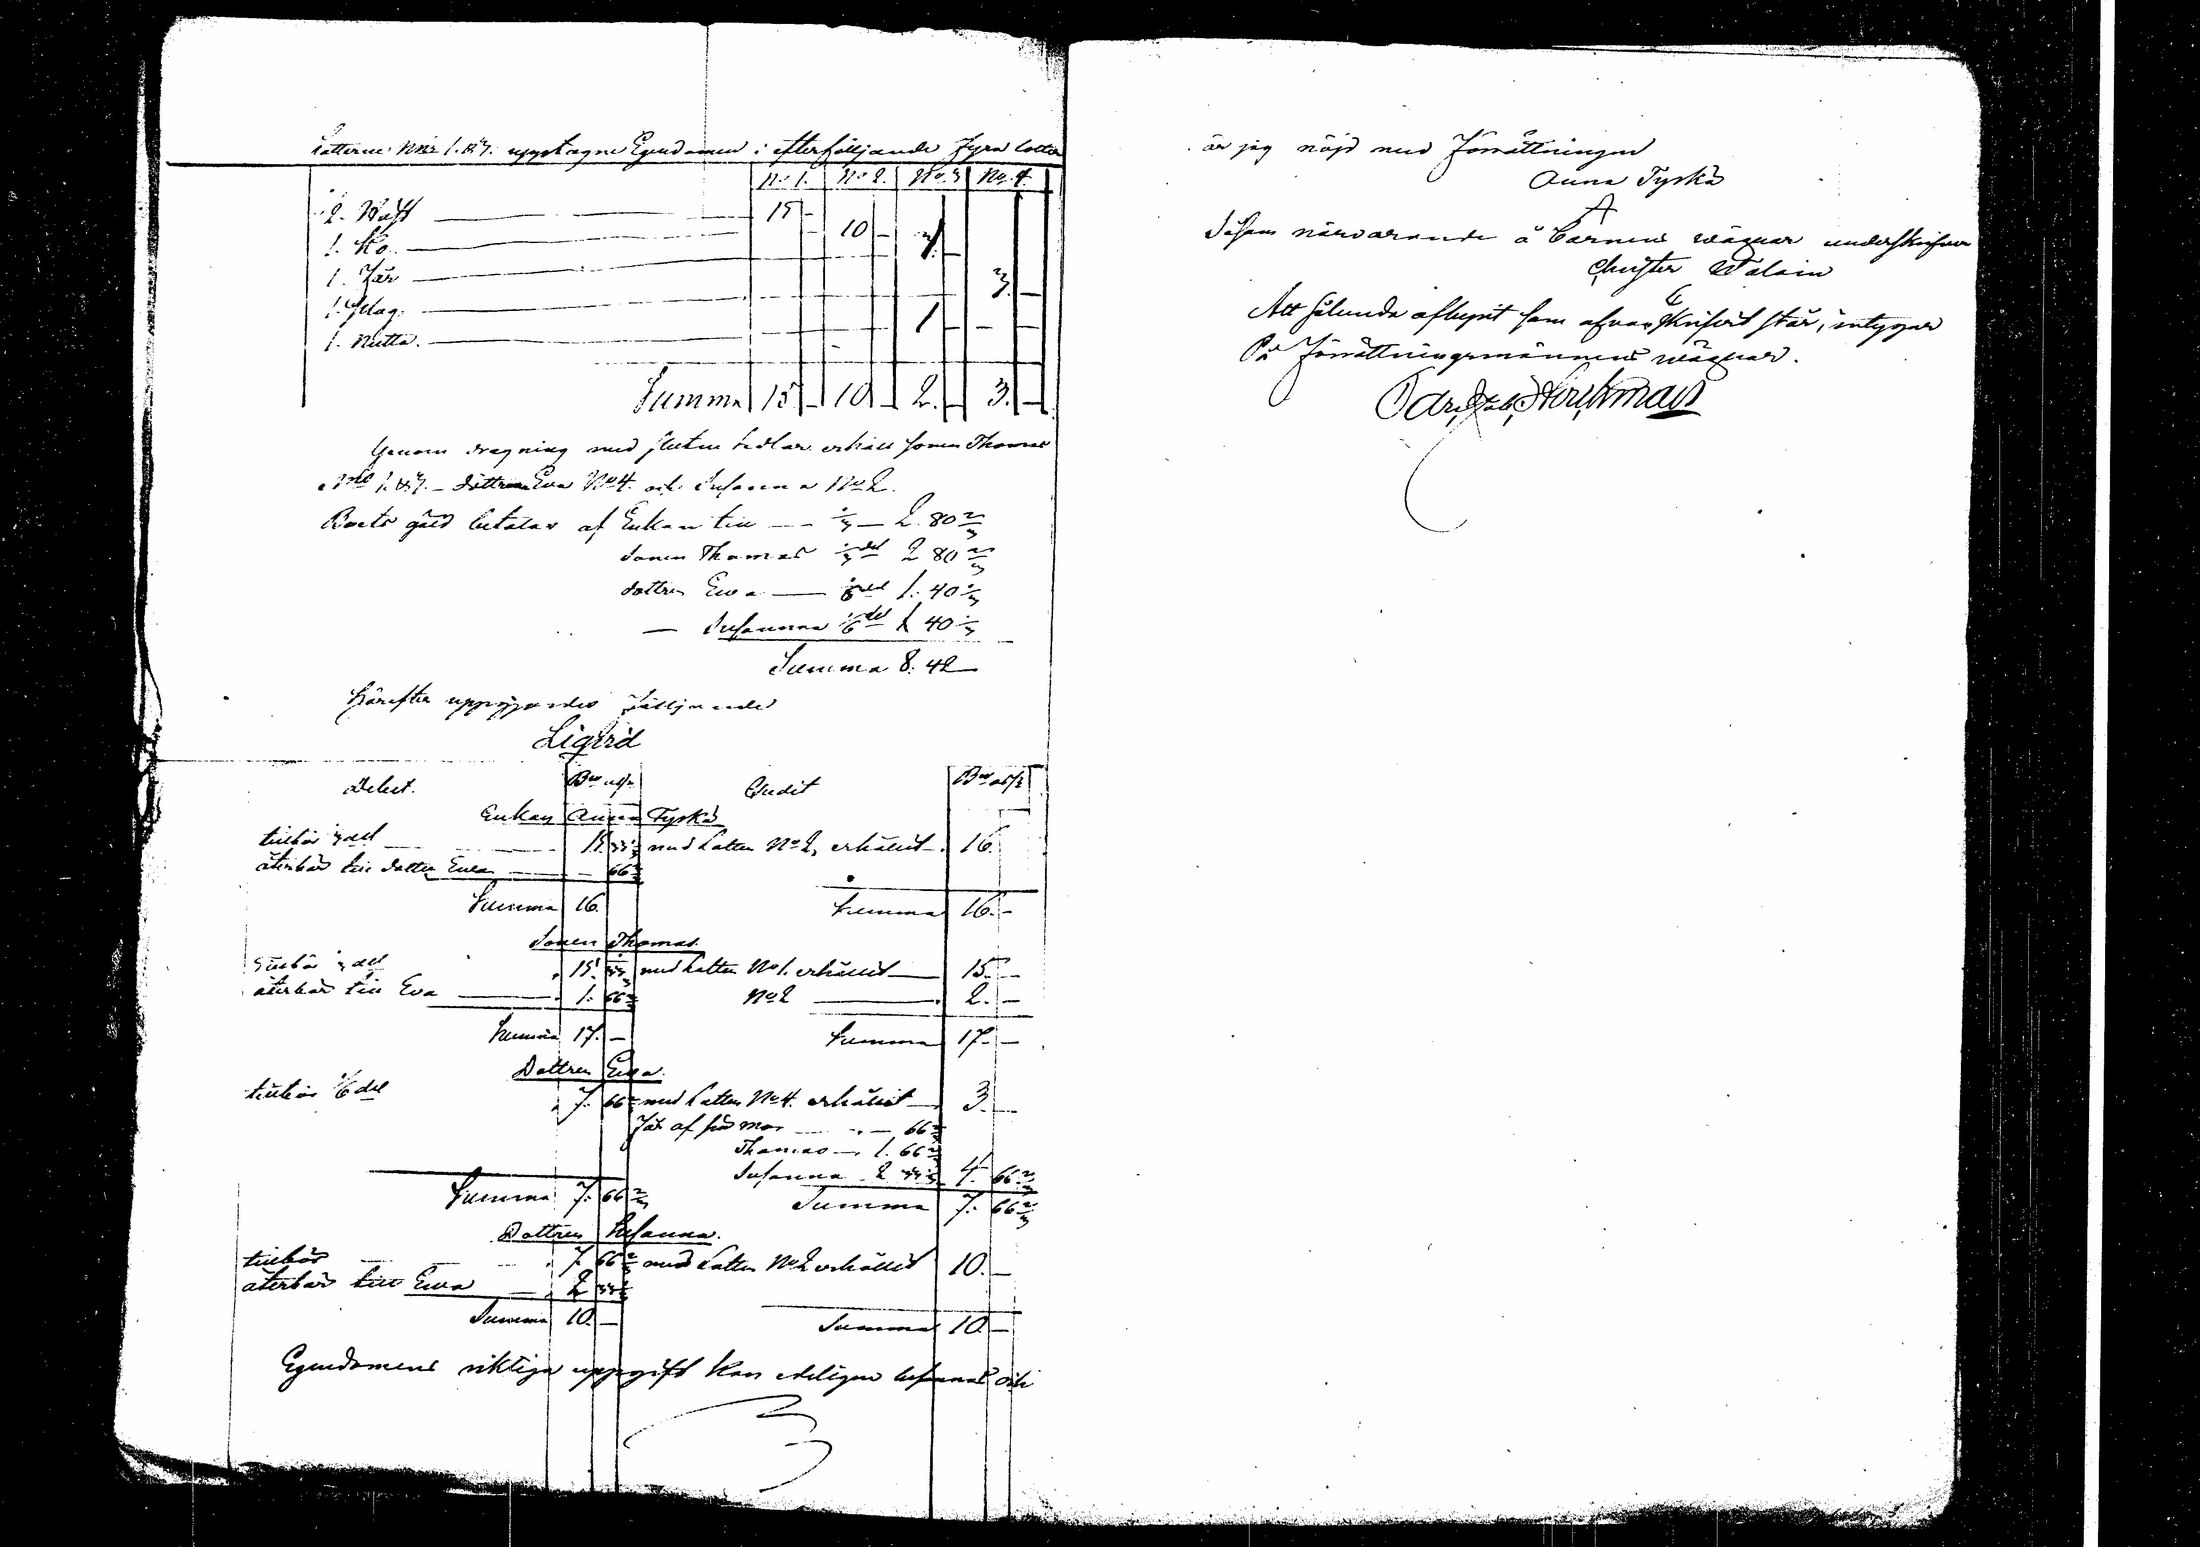 Lotterne N:ris 1. & 7. upptagne Egendomen i efterföljande Fyra lotter
No 1. No 2. No 3 No 4.
2. 15 –
1. Ko 10 –
1. Får 3. –
1. 1 – –
1.
Summa 15 – 10 – 2. – 3. –
Genom dragning med slutne sedlar erhöll sonen Thomas
No 1. & 7. – dottren Eva No 4. och Susanna No 2.
Boets gäld betalas af Enkan till 1/3 – 2. 80 2/3
sonen Thomas 1/3 del 2 80 2/3
dottren Eva 1/6 del 1. 40 1/3
— Susanna 1/6 del 1 40 1/3
Summa 8. 42
Härefter uppgjordes följande
Liqvid
Debet. Credit
Enkan Anna Tyskä
tillkör 1/3 del 15. 33 1/3 med Lotten No 2, erhållit 16.
återbär till dotter Eva 66 2/3
Summa 16. Summa 16. –
Sonen Thomas.
tillkör 1/3 del 15. 33 1/3 med Lotten No 1. erhållit 15. –
återbär till Eva 1. 66 2/3 No 2 2. –
Summa 17. – Summa 17. –
Dottren Eva.
tillkör 1/6 del 7. 66 2/3 med Lotten No 4. erhållit 3. –
får af sin mor 66 2/3
Thomas 1. 66 2/3
Susanna 2 33 1/3 4. 66 2/3
Summa 7. 66 2/3 Summa 7. 66 2/3
Dottren Susanna.
tillkör 7. 66 2/3 med Lotten No 2 erhållit 10. –
återbär till Eva 2 33 1/3
Summa 10. – Summa 10. –
Egendomens riktiga uppgift kan edeligen besannas och
är jag nöjd med Förrättningen
Anna Tyskä
A
Såsom närvarande å barnens vägnar underskrifver
Christer
Att sålunda aflupit som ofvanskrifvit står, intygar
På Förrättningsmännens vägnar.